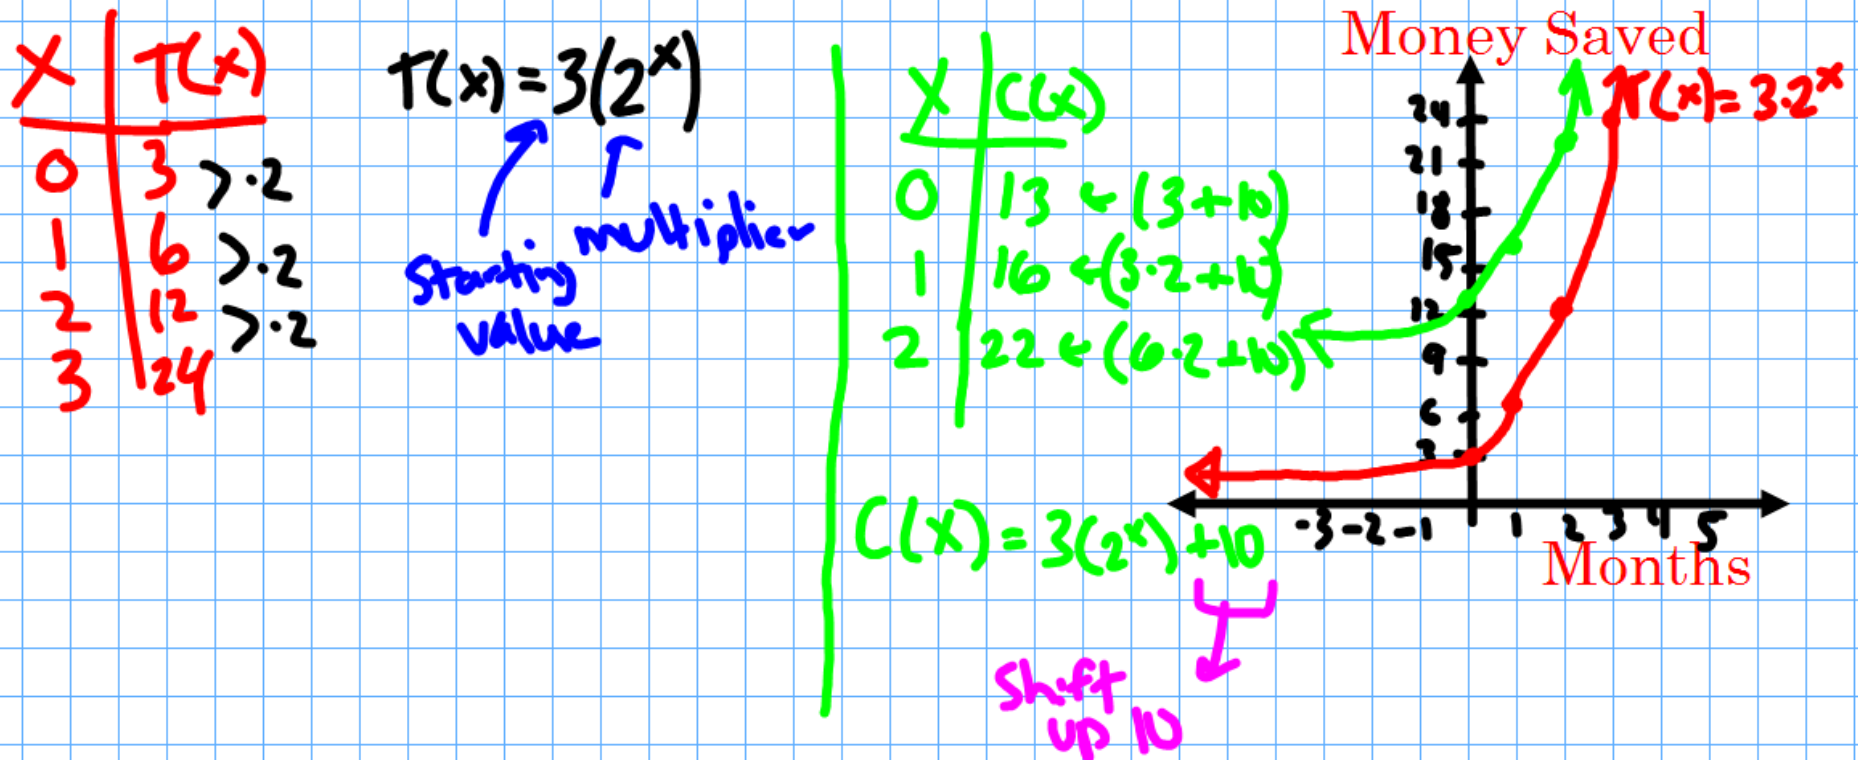 X T(x)
0 3 >·2
1 6 >·2
2 12 >·2
3 24
T(x) = 3(2^x)
starting value
multiplier
X C(x)
0 13 ← (3+10)
1 16 ← (3·2+10)
2 22 ← (6·2+10)
C(x) = 3(2^x) +10
shift
up 10
Money Saved
T(x) = 3·2^x
24
21
18
15
12
9
6
3
-3 -2 -1 1 2 3 4 5
Months